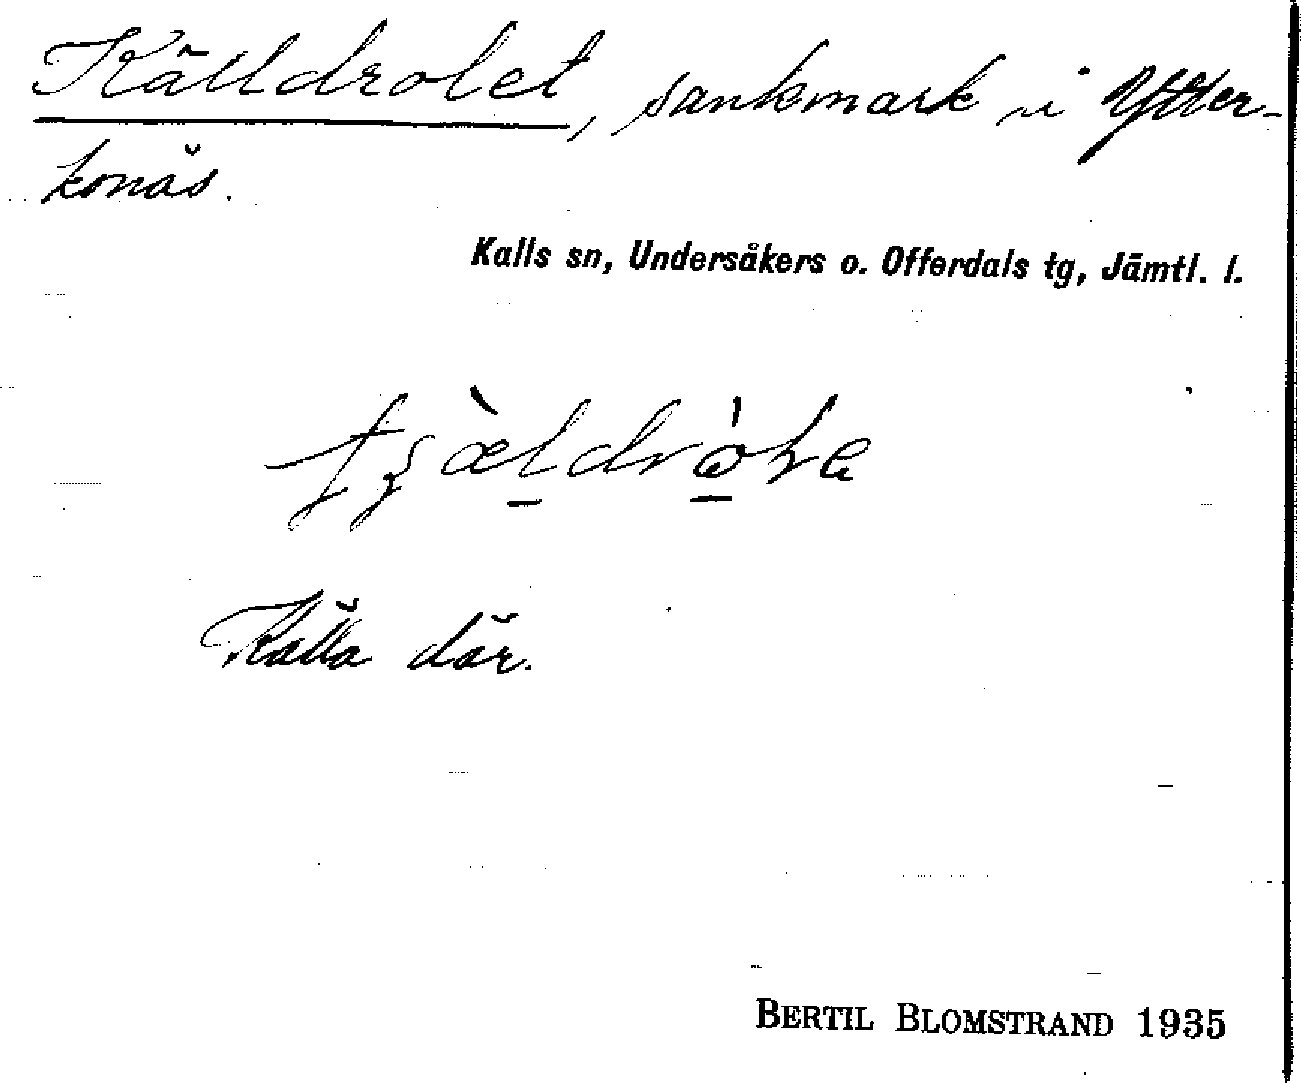 Källdrolet, sankmark i Ytter-
konäs.
Kalls sn, Undersåkers o. Offerdals tg, Jämtl. l.
Källa där.
BERTIL BLOMSTRAND 1935